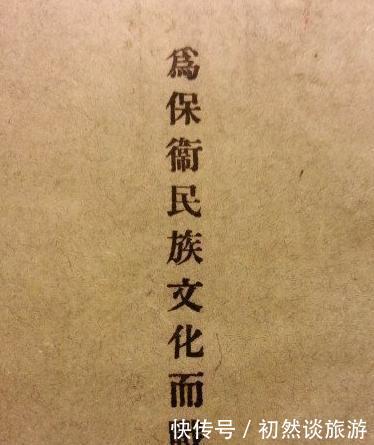 爲保衞民族文化而
快传号/初然谈旅游